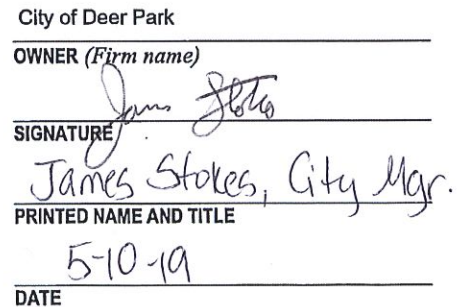 City of Deer Park
OWNER (Firm name)
James Stokes
SIGNATURE
James Stokes, City Mgr.
PRINTED NAME AND TITLE
5-10-19
DATE